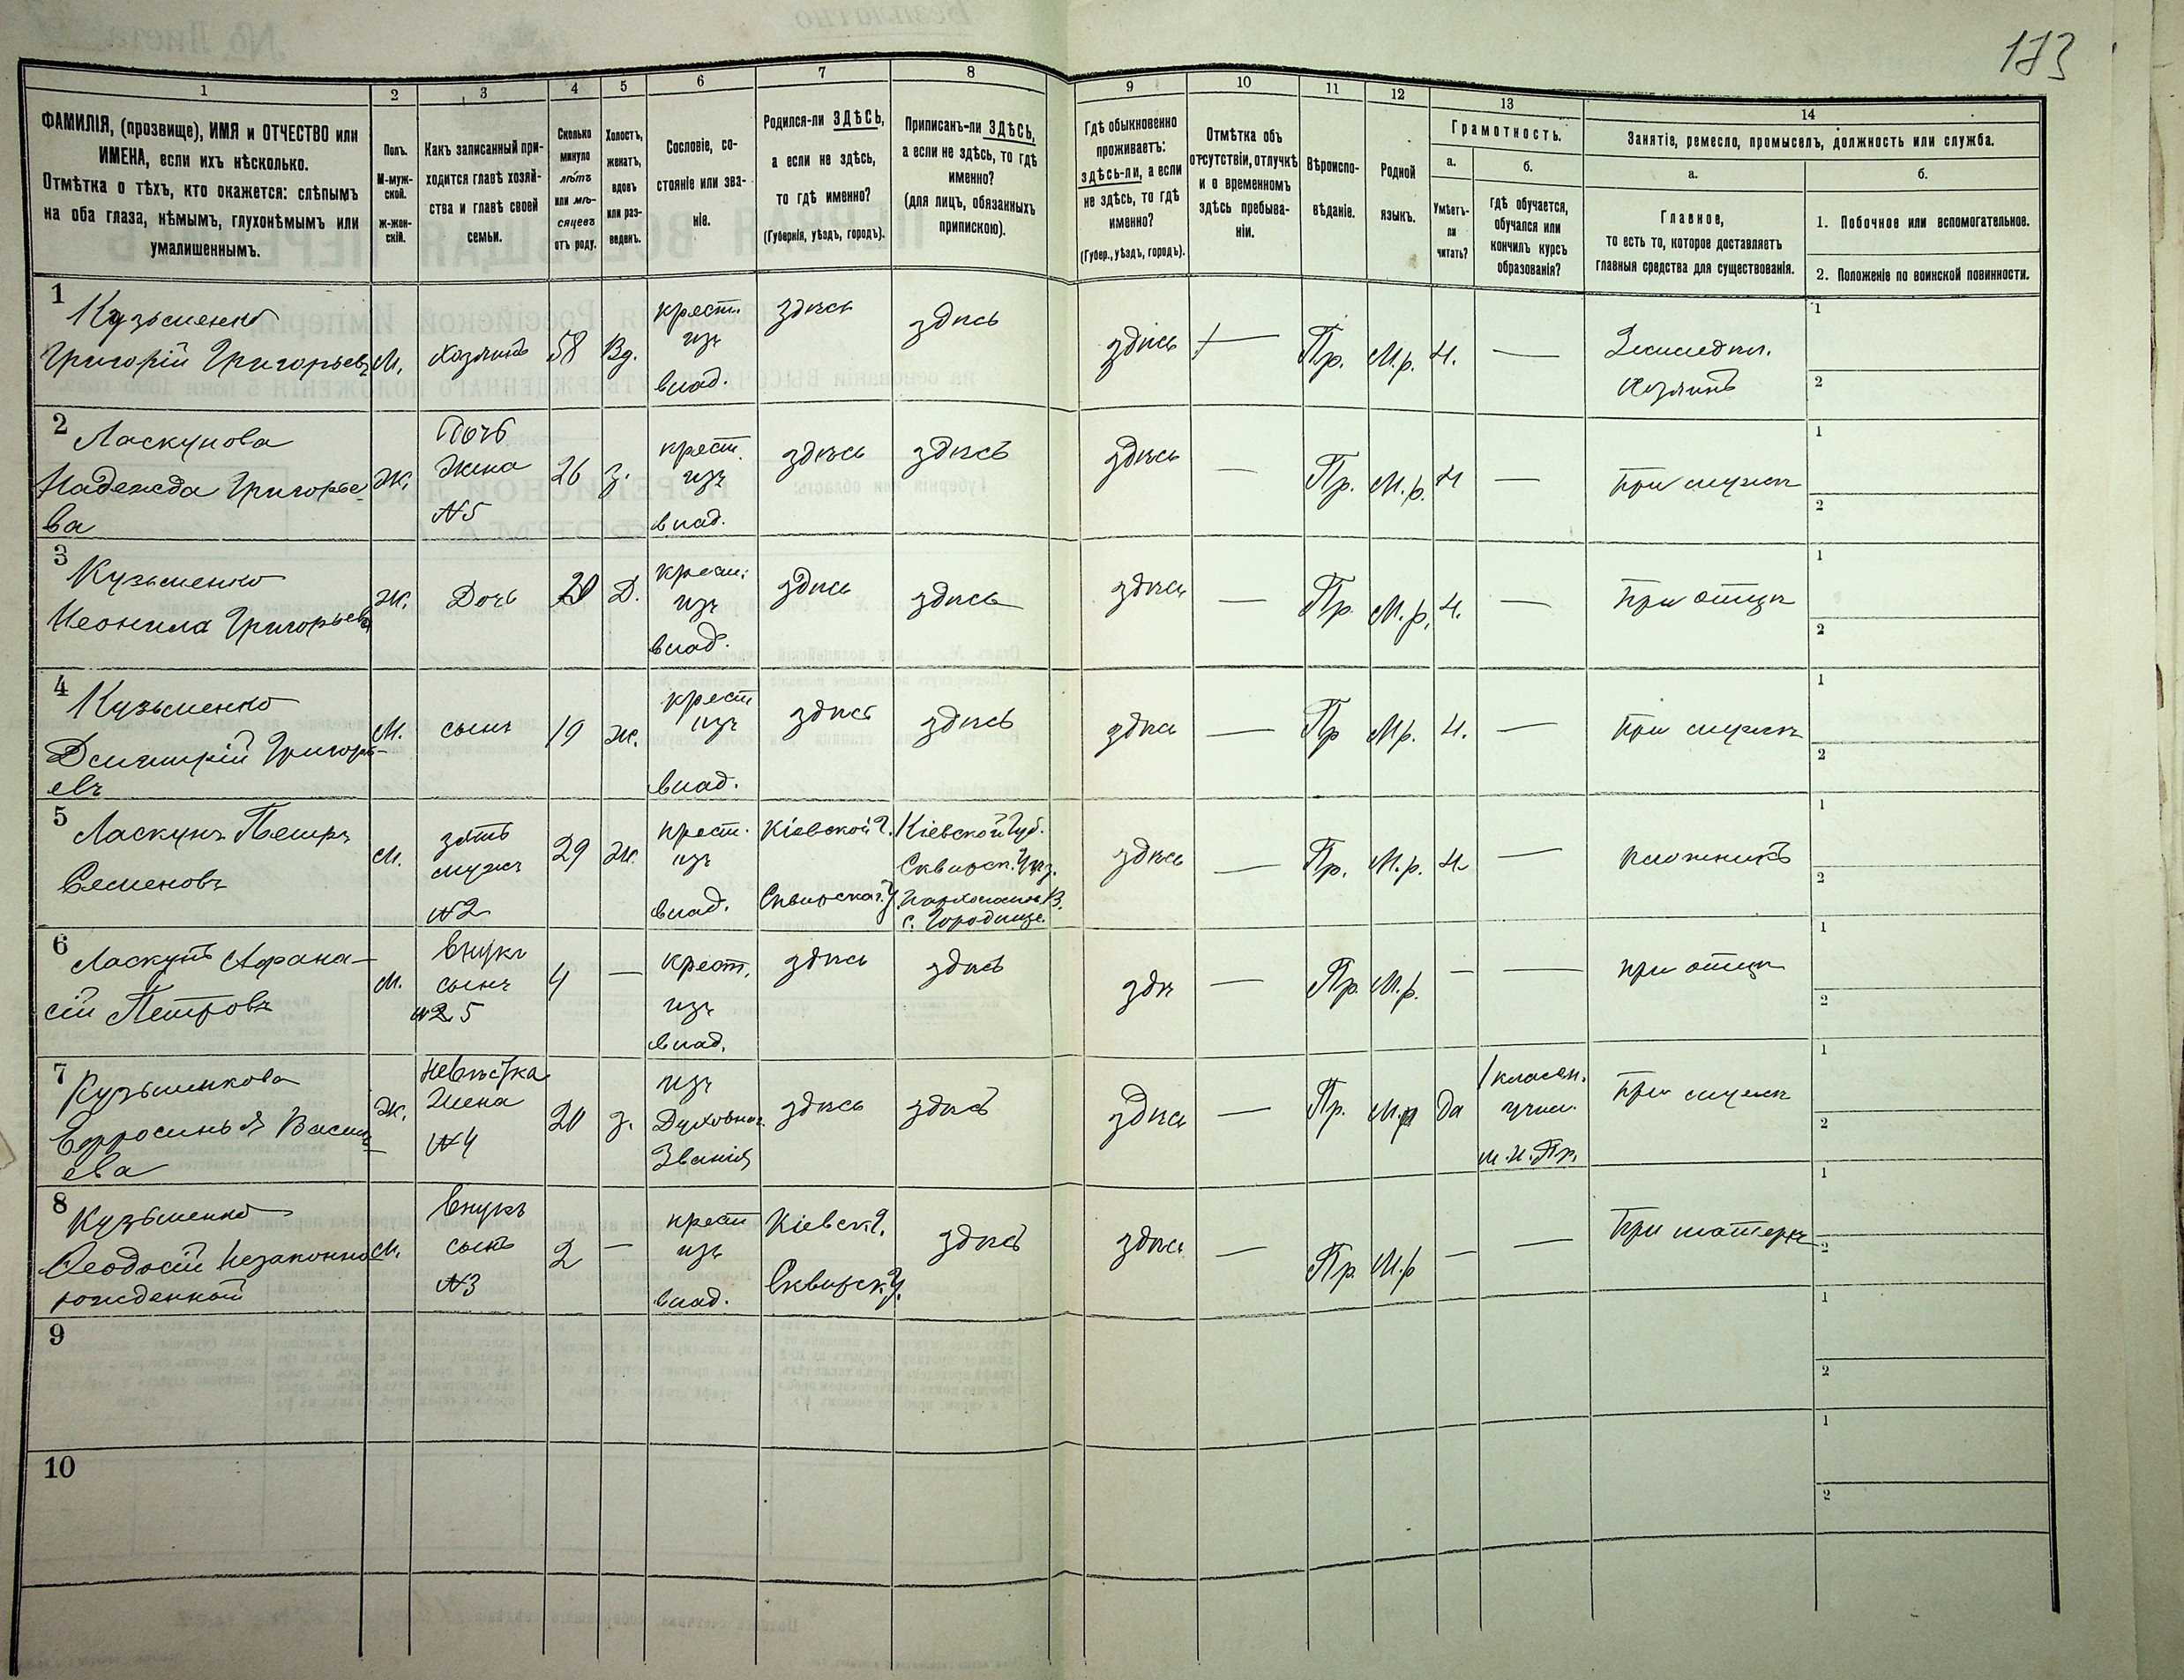 173
1
2
3
4
5
6
7
8
9
10
11
12
13
14
ФАМИЛІЯ, (прозвище), ИМЯ и ОТЧЕСТВО или
ИМЕНА, если ихъ нѣсколько.
Отмѣтка о тѣхъ, кто окажется: слѣпымъ
на оба глаза, нѣмымъ, глухонѣмымъ или
умалишеннымъ.
Полъ.
М-муж-
ской.
Ж-жен-
скій.
Какъ записанный при-
ходится главѣ хозяй-
ства и главѣ своей
семьи.
Сколько
минуло
лѣтъ
или мѣ-
сяцевъ
отъ роду.
Холостъ,
женатъ,
вдовъ
или раз-
веденъ.
Сословіе, со-
стояніе или зва-
ніе.
Родился-ли ЗДѢСЬ,
а если не здѣсь,
то гдѣ именно?
(Губернія, уѣздъ, городъ).
Приписанъ-ли ЗДѢСЬ,
а если не здѣсь, то гдѣ
именно?
(для лицъ, обязанныхъ
припискою).
Гдѣ обыкновенно
проживаетъ:
здѣсь-ли, а если
не здѣсь, то гдѣ
именно?
(Губер., уѣздъ, городъ).
Отмѣтка объ
отсутствіи, отлучкѣ
и о временномъ
здѣсь пребыва-
ніи.
Вѣроиспо-
вѣданіе.
Родной
языкъ.
Грамотность.
а.
Умѣетъ-
ли
читать?
б.
гдѣ обучается,
обучался или
кончилъ курсъ
образованія?
Занятіе, ремесло, промыселъ, должность или служба.
а.
Главное,
то есть то, которое доставляетъ
главныя средства для существованія.
б.
1. Побочное или вспомогательное.
2. Положеніе по воинской повинности.
1
Кузьменко
Григорій Григорьевъ
М.
Хозяинъ
58
Вд.
крест.
изъ
влад.
здѣсь
здѣсь
здѣсь
—
Пр.
М.р.
Н.
—
Земледѣл.
Хозяинъ
1
2
2
Ласкунова
Надежда Григорье-
ва
Ж.
Дочь
Жена
№5
26
З.
крест.
изъ
влад.
здѣсь
здѣсь
здѣсь
—
Пр.
М.р.
Н
—
При мужѣ
1
2
3
Кузьменко
Неонила Григорьева
Ж.
Дочь
20
Д.
крест.
изъ
влад.
здѣсь
здѣсь
здѣсь
—
Пр
М.р.
Н.
—
При отцѣ
1
2
4
Кузьменко
Димитрій Григорь-
евъ
М.
сынъ
19
ж.
крест
изъ
влад.
здѣсь
здѣсь
здѣсь
—
Пр
М.р.
Н.
—
1
2
5
Ласкунъ Петръ
Семеновъ
М.
зять
мужъ
№2
29
Ж.
крест.
изъ
влад.
Кіевской Г.
Сквирскаго У.
Кіевской Губ.
Сквирск. Уѣз.
с. Городище.
здѣсь
—
Пр.
М.р.
Н.
—
1
2
6
Ласкунъ Афана-
сій Петровъ
М.
Внукъ
сынъ
№5
4
—
крест.
изъ
влад.
здѣсь
здѣсь
здѣ
—
Пр.
М.р.
—
—
при отцѣ
1
2
7
Кузьменкова
Ефросинья Василь-
ева
Ж.
Невѣстка
Жена
№4
20
З.
изъ
Духовнаг.
Званія
здѣсь
здѣсь
здѣсь
—
Пр.
М.р
да
1 класен.
учил.
М.Н.Пр.
При мужѣ
1
2
8
Кузьменко
Ѳеодосій Незаконно
рожденный
М.
Внукъ
сынъ
№3
2
—
крест
изъ
влад.
Кіевск Г.
Сквирск. У.
здѣсь
здѣсь
—
Пр.
М.р
—
—
При матерѣ
1
2
9
1
2
10
1
2